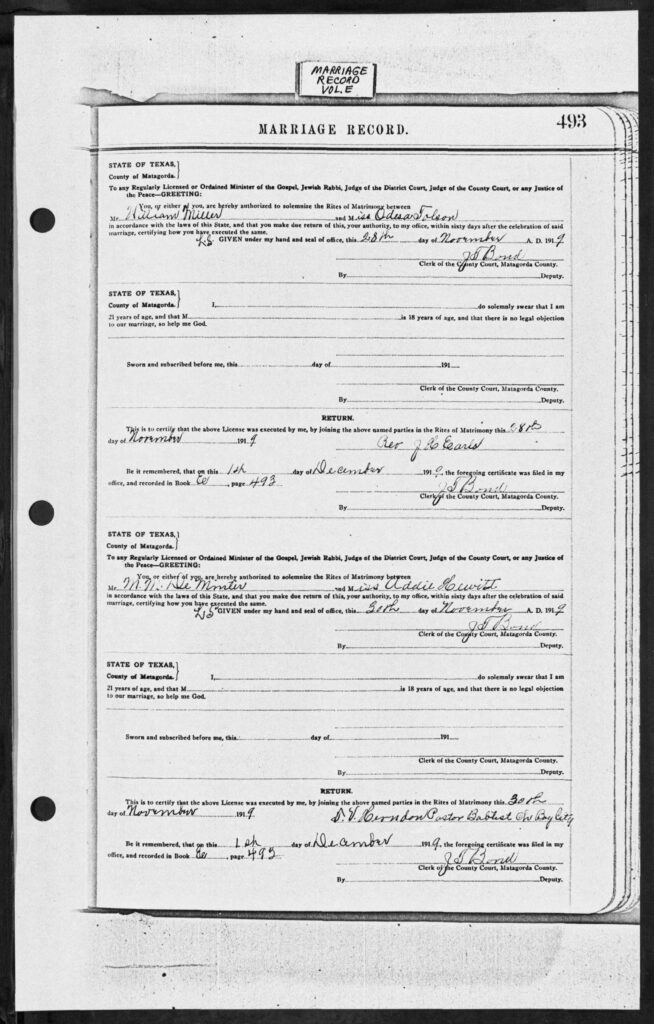 MARRIAGE
RECORD
VOL. E
493
MARRIAGE RECORD.
STATE OF TEXAS,
County of Matagorda.
To any Regularly Licensed or Ordained Minister of the Gospel, Jewish Rabbi, Judge of the District Court, Judge of the County Court, or any Justice of
the Peace—GREETING:
You, or either of you, are hereby authorized to solemnize the Rites of Matrimony between
Mr. William Miller and Miss Odesa Tolson
in accordance with the laws of this State, and that you make due return of this, your authority, to my office, within sixty days after the celebration of said
marriage, certifying how you have executed the same.
LS GIVEN under my hand and seal of office, this 28th day of November A. D. 1919
J S Bond
Clerk of the County Court, Matagorda County.
By Deputy.
STATE OF TEXAS,
County of Matagorda. I, do solemnly swear that I am
21 years of age, and that M is 18 years of age, and that there is no legal objection
to our marriage, so help me God.
Sworn and subscribed before me, this day of 191
Clerk of the County Court, Matagorda County.
By Deputy.
RETURN.
This is to certify that the above License was executed by me, by joining the above named parties in the Rites of Matrimony this 28th
day of November 1919 Rev J H Earls
Be it remembered, that on this 1st day of December 1919, the foregoing certificate was filed in my
office, and recorded in Book E, page 493 J S Bond
Clerk of the County Court, Matagorda County.
By Deputy.
STATE OF TEXAS,
County of Matagorda.
To any Regularly Licensed or Ordained Minister of the Gospel, Jewish Rabbi, Judge of the District Court, Judge of the County Court, or any Justice of
the Peace—GREETING:
You, or either of you, are hereby authorized to solemnize the Rites of Matrimony between
Mr. De and Miss Addie Hewitt
in accordance with the laws of this State, and that you make due return of this, your authority, to my office, within sixty days after the celebration of said
marriage, certifying how you have executed the same.
LS GIVEN under my hand and seal of office, this 30th day of November A. D. 1919
J S Bond
Clerk of the County Court, Matagorda County.
By Deputy.
STATE OF TEXAS,
County of Matagorda. I, do solemnly swear that I am
21 years of age, and that M is 18 years of age, and that there is no legal objection
to our marriage, so help me God.
Sworn and subscribed before me, this day of 191
Clerk of the County Court, Matagorda County.
By Deputy.
RETURN.
This is to certify that the above License was executed by me, by joining the above named parties in the Rites of Matrimony this 30th
day of November 1919 Herndon Pastor Baptist Ch Bay City
Be it remembered, that on this 1st day of December 1919, the foregoing certificate was filed in my
office, and recorded in Book E, page 493 J S Bond
Clerk of the County Court, Matagorda County.
By Deputy.